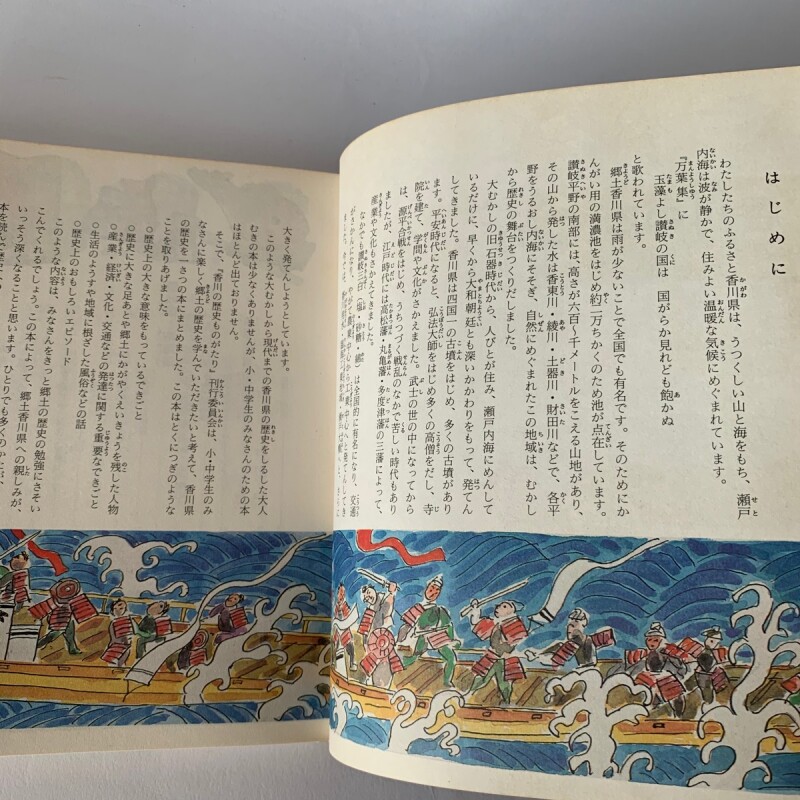 はじめに
わたしたちのふるさと香川県は、うつくしい山と海をもち、瀬戸
内海は波が静かで、住みよい温暖な気候にめぐまれています。
『万葉集』に
玉藻よし讃岐の国は 国がらか見れども飽かぬ
と歌われています。
郷土香川県は雨が少ないことで全国でも有名です。そのためにか
んがい用の満濃池をはじめ約二万ちかくのため池が点在しています。
讃岐平野の南部には、高さが六百〜千メートルをこえる山地があり、
その山から発した水は香東川・綾川・土器川・財田川などで、各平
野をうるおし内海にそそぎ、自然にめぐまれたこの地域は、むかし
から歴史の舞台をつくりだしました。
大むかしの旧石器時代から、人びとが住み、瀬戸内海にめんして
いるだけに、早くから大和朝廷とも深いかかわりをもって、発てん
してきました。香川県は四国一の古墳をはじめ、多くの古墳があり
ます。平安時代になると、弘法大師をはじめ多くの高僧をだし、寺
院を建て、学問や文化がさかえました。武士の世の中になってから
は、源平合戦をはじめ、うちつづく戦乱のなかで苦しい時代もあり
ましたが、江戸時代には高松藩・丸亀藩・多度津藩の三藩によって、
産業や文化もさかえてきました。
なかでも讃岐三白(塩・砂糖・綿)は全国的に有名になり、交通
大きく発てんしようとしています。
このような大むかしから現代までの香川県の歴史をしるした大人
むきの本は少なくありませんが、小・中学生のみなさんのための本
はほとんど出ておりません。
そこで、「香川の歴史ものがたり」刊行委員会は、小・中学生のみ
なさんに楽しく郷土の歴史を学んでいただきたいと考えて、香川県
の歴史を一さつの本にまとめました。この本はとくにつぎのような
ことを取りあげました。
○歴史上の大きな意味をもっているできごと
○歴史に大きな足あとや郷土にかがやくえいきょうを残した人物
○産業・経済・文化・交通などの発達に関する重要なできごと
○生活のようすや地域に根ざした風俗などの話
○歴史上のおもしろいエピソード
このような内容は、みなさんをきっと郷土の歴史の勉強にさそい
こんでくれるでしょう。この本によって、郷土香川県への親しみが、
いっそう深くなることと思います。ひとりでも多くのかたが、